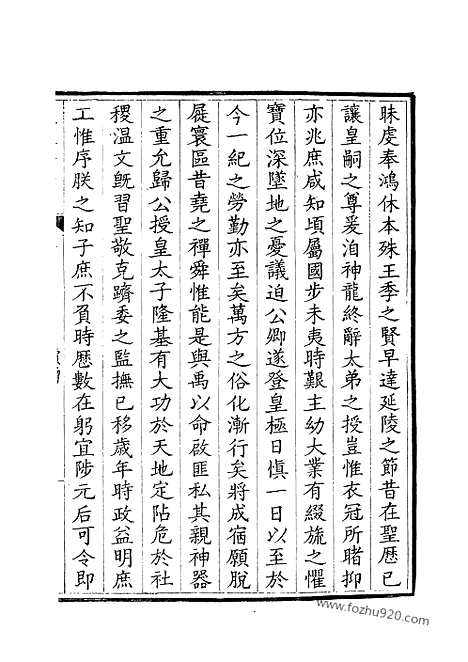 昧虔奉鴻休本殊王季之賢早達延陵之節昔在聖歴已
讓皇嗣之尊爰洎神龍終辭太弟之授豈惟衣冠所睹抑
亦兆庶咸知頃屬國步未夷時艱主幼大業有綴旒之懼
寶位深墜地之憂議迫公卿遂登皇極日慎一日以至於
今一紀之勞勤亦至矣萬方之俗化漸行矣將成宿願脫
屣寰區昔堯之禪舜惟能是與禹以命啟匪私其親神器
之重允歸公授皇太子隆基有大功於天地定阽危於社
稷温文旣習聖敬克躋委之監撫已移歳年時政益明庶
工惟序朕之知子庶不負時歴數在躬宜陟元后可令即
www.fozhu920.com